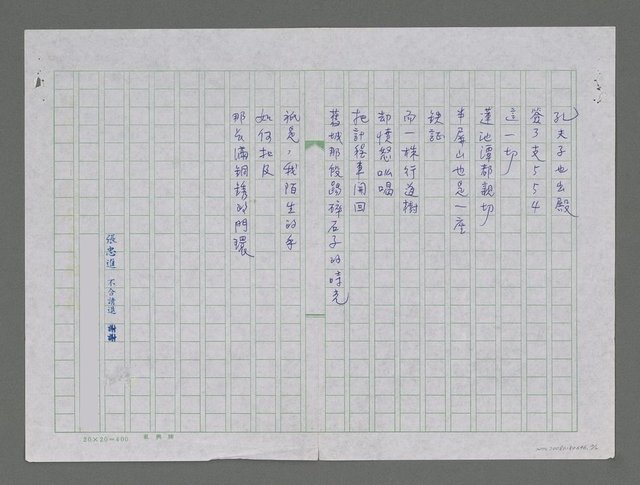 孔夫子也出殿
簽了支554
這一切
蓮池潭都親切
半屏山也是一座
鉄証
而一株行道樹
却憤怒吆喝
把計程車開回
舊城那段踢碎石子的時光
祇是,我陌生的手
如何扣及
那長滿銅銹的門環
張忠進 不合請退 謝謝
20×20=400